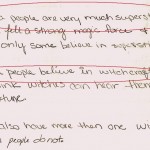 a people are very much supers
felt a strong magic force &
only some believe in supersti
s people believe in witchcraf
ink witches can hear them
ature
also have more than one wi
people do not